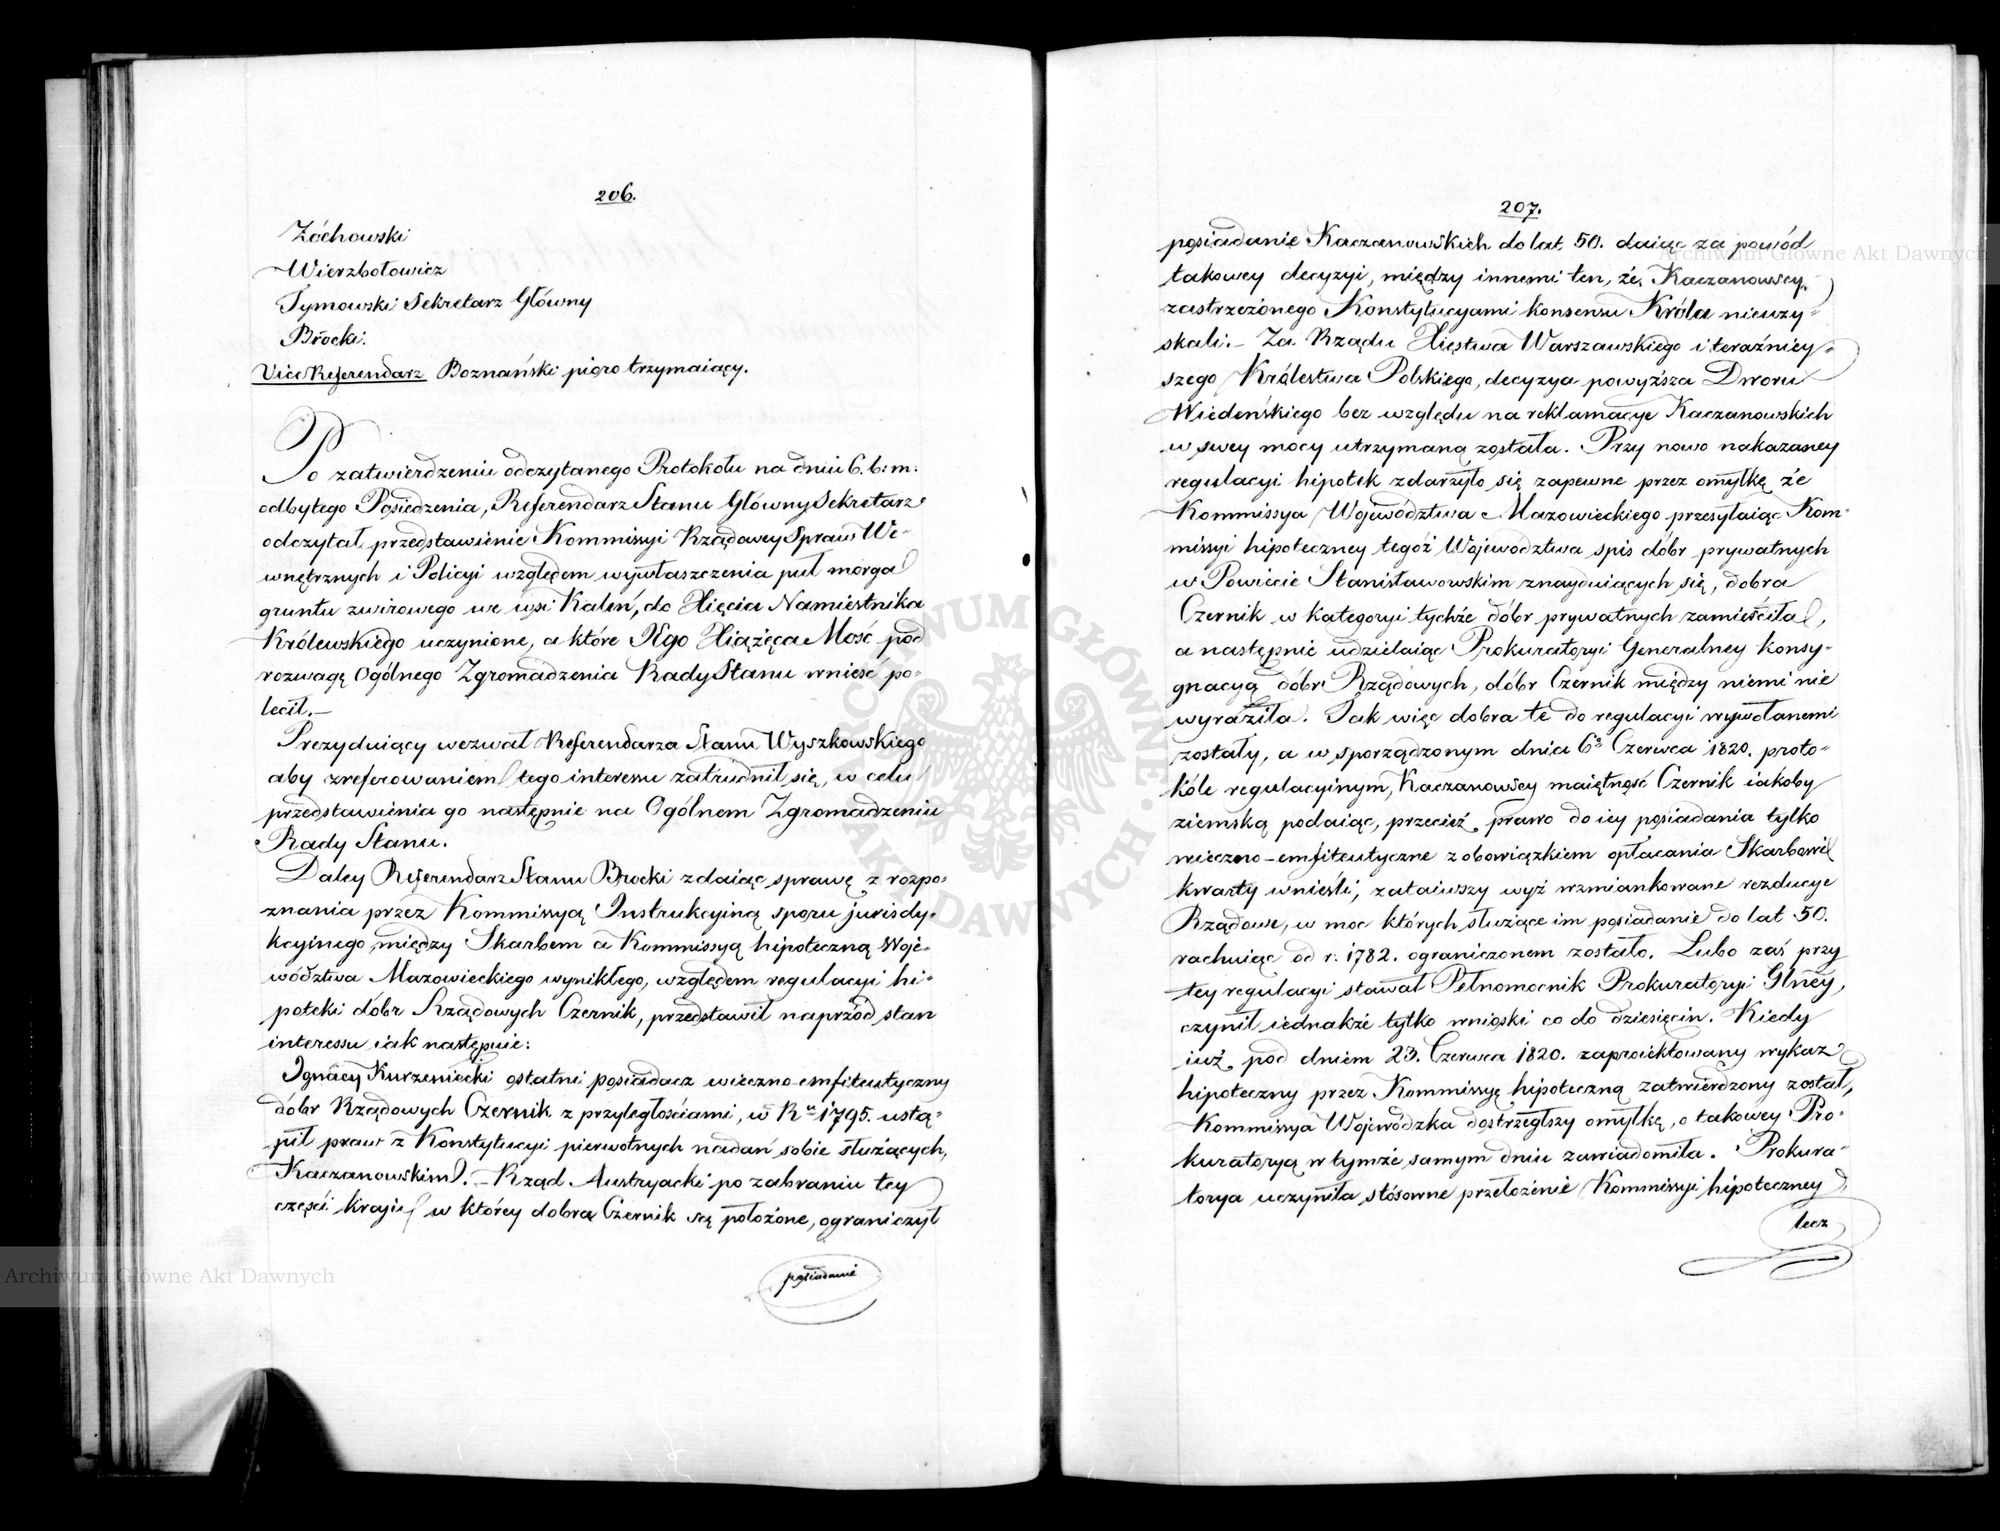 206.
Zóchowski
Wierzbołowicz
Tymowski Sekretarz Główny
Brocki.
Vice Referendarz Boznański pióro trzymaiący.
Po zatwierdzeniu odczytanego Protokołu na dniu 6. b: m:
odbytego Posiedzenia, Referendarz Stanu Główny Sekretarz
odczytał przedstawienie Kommissyi Rządowey Spraw We-
wnętrznych i Policyi względem wywłaszczenia puł morga
gruntu zwirowego we wsi Kaleń, do Xięcia Namiestnika
Królewskiego uczynione, a które Xgo Xiążęca Mość pod
rozwagę Ogólnego Zgromadzenia Rady Stanu wnieść po-
lecił.—
Prezyduiący wezwał Referendarza Stanu Wyszkowskiego
aby zreferowaniem tego interessu zatrudnił się, w celu
przedstawienia go następnie na Ogólnem Zgromadzeniu
Rady Stanu.
Daley Referendarz Stanu Brocki zdaiąc sprawę z rozpo-
znania przez Kommissyą Instrukcyiną sporu jurisdy-
kcyinego między Skarbem a Kommissyą hipoteczną Woje-
wództwa Mazowieckiego wynikłego, względem regulacyi hi-
poteki dóbr Rządowych Czernik, przedstawił naprzód stan
interessu iak następuie:
Ignacy Kurzeniecki ostatni posiadacz wieczno-emfiteutyczny
dóbr Rządowych Czernik z przyległościami, w Ru 1795. ustą-
pił praw z Konstytucyi pierwotnych nadań sobie służących,
Kaczanowskim. — Rząd Austryacki po zabraniu tey
części kraiu w którey dobra Czernik są położone, ograniczył
posiadanie
207.
posiadanie Kaczanowskich do lat 50. daiąc za powód
takowey decyzyi, między innemi ten, że Kaczanowscy
zastrzeżonego Konstytucyami konsensu Króla nieuzy-
skali. — Za Rządu Xięstwa Warszawskiego i teraźniey-
szego Królestwa Polskiego, decyzya powyższa Dworu
Wiedeńskiego bez względu na reklamacye Kaczanowskich
w swey mocy utrzymaną została. Przy nowo nakazaney
regulacyi hipotek zdarzyło się zapewne przez omyłkę że
Kommissya Województwa Mazowieckiego przesyłaiąc Kom-
missyi hipoteczney tegoż Województwa spis dóbr prywatnych
w Powiecie Stanisławowskim znayduiących się, dobra
Czernik w kategoryi tychże dóbr prywatnych zamieściła,
a następnie udzielaiąc Prokuratoryi Generalney konsy-
gnacyą dóbr Rządowych, dóbr Czernik między niemi nie
wyraziła. Jak więc dobra te do regulacyi wywołanemi
zostały, a w sporządzonym dnia 6go Czerwca 1820. proto-
kóle regulacyinym, Kaczanowscy maiętność Czernik iakoby
ziemską podaiąc, przecież prawo do iey posiadania tylko
wieczno-emfiteutyczne z obowiązkiem opłacania Skarbowi
kwarty wnieśli, zataiwszy wyż wzmiankowane rezolucye
Rządowe, w moc których służące im posiadanie do lat 50.
rachuiąc od r: 1782. ograniczonem zostało. Lubo zaś przy
tey regulacyi stawał Pełnomocnik Prokuratoryi Glney,
czynił iednakże tylko wnioski co do dziesięcin. Kiedy
iuż pod dniem 23. Czerwca 1820. zaproiektowany wykaz
hipoteczny przez Kommissyę hipoteczną zatwierdzony został,
Kommissya Wojewódzka dostrzegłszy omyłkę, o takowey Pro-
kuratoryą w tymże samym dniu zawiadomiła. Prokura-
torya uczyniła stósowne przełożenie Kommissyi hipoteczney
lecz
Archiwum Główne Akt Dawnych
Archiwum Główne Akt Dawnych
ARCHIWUM GŁÓWNE
AKT DAWNYCH